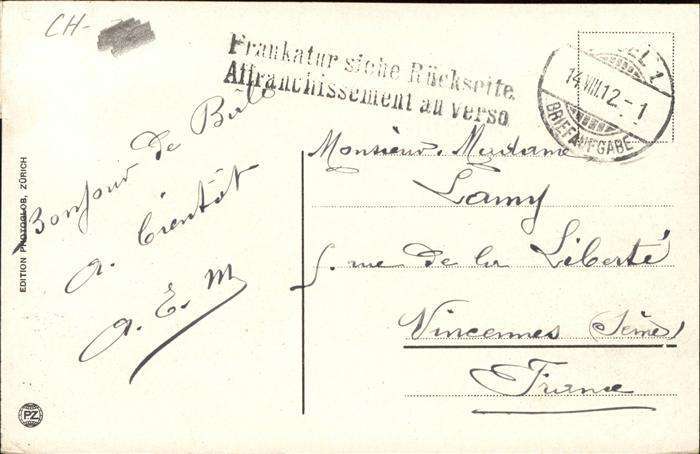 CH-
Frankatur siehe Rückseite.
Affranchissement au verso
BASEL 1
14.VIII.12.-1
BRIEFAUFGABE
Bonjour de Bâle
a bientôt
a. E. M
EDITION PHOTOGLOB, ZÜRICH
PZ
Monsieur. Madame
Lamy
5. rue de la Liberté
Vincennes (Seine)
France